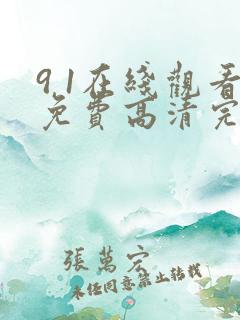 91在綫觀看
免費高清完
張萬宏
未經同意禁止轉載